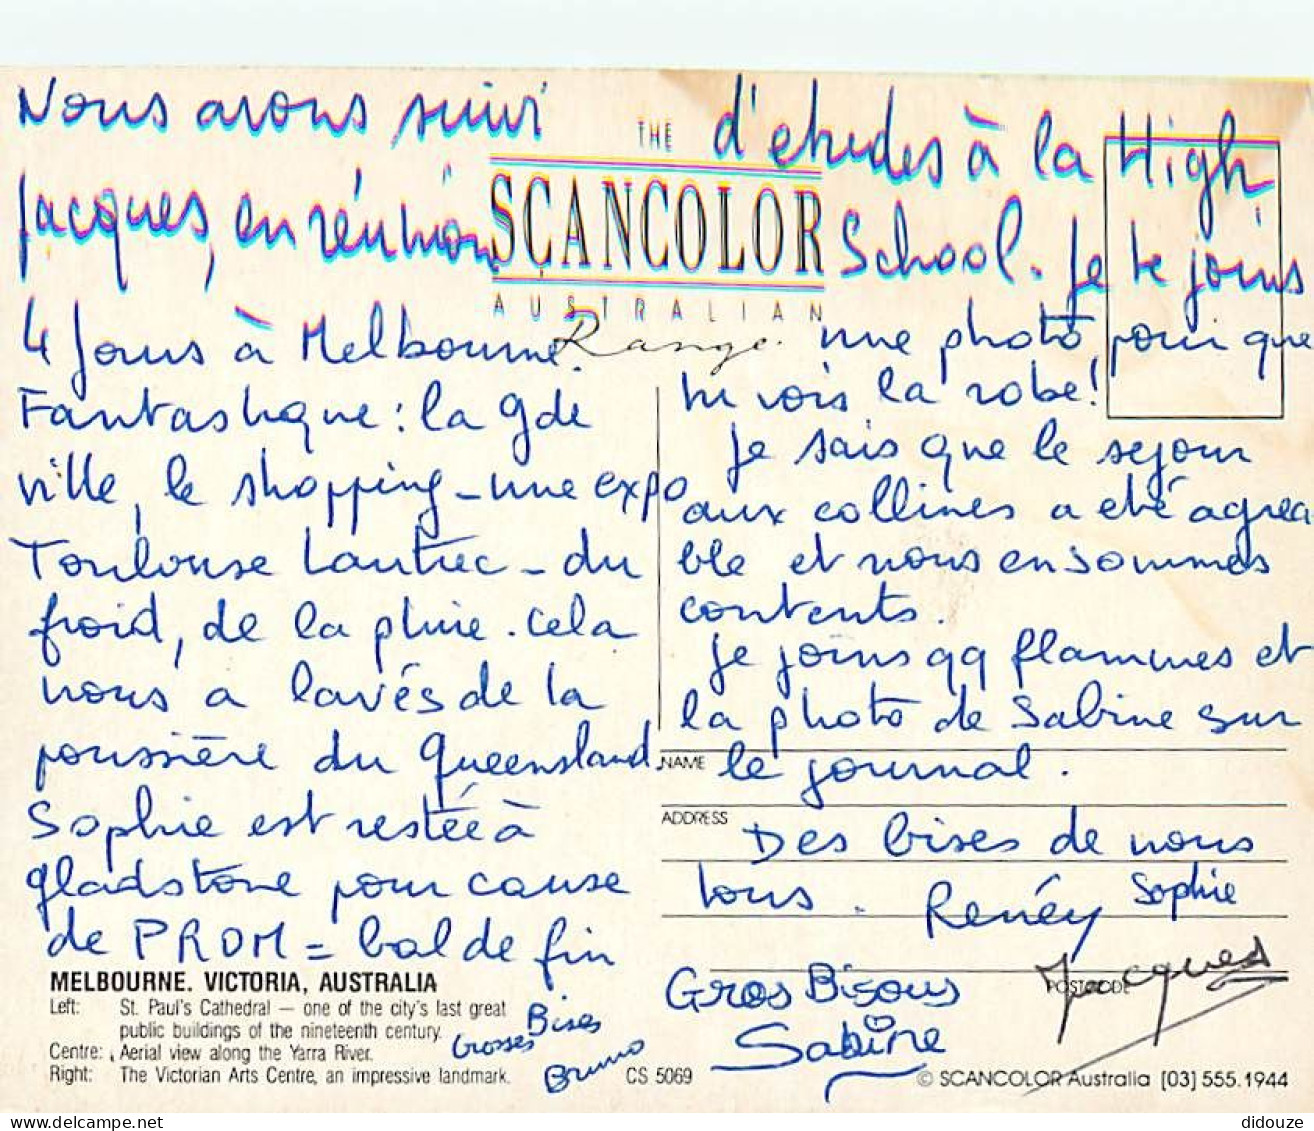 Nous avons suivi
Jacques, en réunion
4 Jours à Melbourne.
Fantastique : la gde
ville, le shopping - une expo
Toulouse Lautrec - du
froid, de la pluie. Cela
nous a lavés de la
poussière du Queensland.
Sophie est restée à
gladstone pour cause
de PROM = bal de fin
d'etudes à la High
School. Je te joins
une photo, pour que
tu vois la robe!
Je sais que le sejour
aux collines a eté agréa
ble et nous en sommes
contents.
Je joins qq flammes et
la photo de Sabine sur
le journal.
Des bises de nous
tous. Renéy Sophie
Jacques
Gros Bisous
Sabine
Grosses Bises
Bruno
THE
SCANCOLOR
AUSTRALIAN
Range.
NAME
ADDRESS
POSTCODE
MELBOURNE. VICTORIA, AUSTRALIA
Left: St. Paul's Cathedral — one of the city's last great
public buildings of the nineteenth century.
Centre: Aerial view along the Yarra River.
Right: The Victorian Arts Centre, an impressive landmark.
CS 5069
© SCANCOLOR Australia [03] 555.1944
didouze